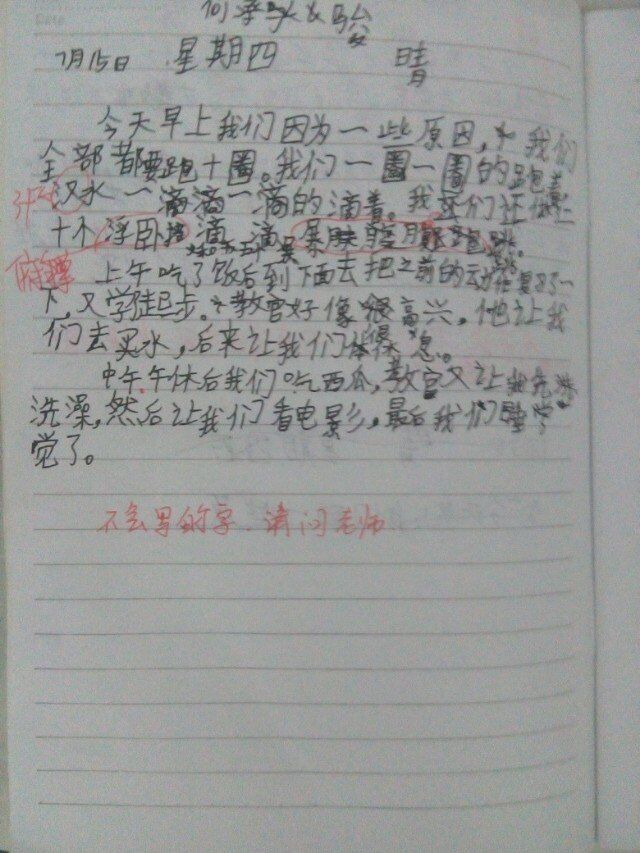 7月15日 星期四 晴
今天早上我们因为一些原因，我们
全部都要跑十圈。我们一圈一圈的跑着
汉水一滴滴一滴的滴着。我们还
十个浮卧
俯撑
上午吃了饭后到下面去把之前的动
下，又学陡起步。教官好像很高兴，他让我
们去买水，后来让我们休息。
中午午休后我们吃西瓜，教官又让
洗澡，然后让我们看电影，最后我们睡
觉了。
不会写的字.请问老师